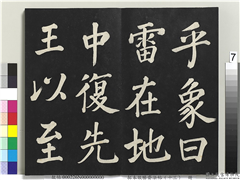 乎象曰
雷在地
中復先
王以至
7